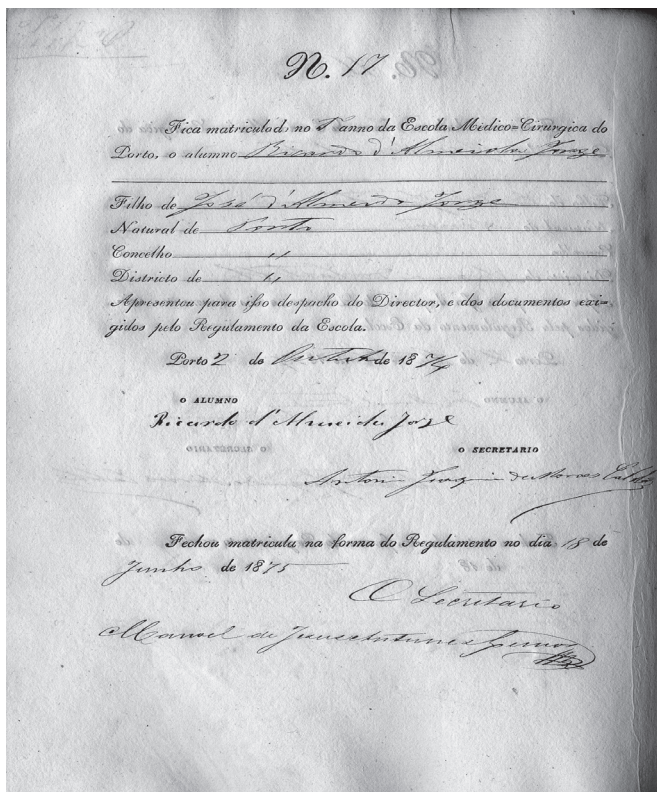 N. 17
Fica matriculad, no 1º anno da Escola Médico=Cirurgica do
Porto, o alumno Ricardo d'Almeida Jorge
Filho de José d'Almeida Jorge
Natural de Porto
Concelho "
Districto de "
Apresentou para isso despacho do Director, e dos documentos exi=
gidos pelo Regulamento da Escola.
Porto 2 de Outubro de 1874
O ALUMNO
Ricardo d'Almeida Jorge
O SECRETARIO
Antonio Joaquim de Moraes Caldas
Fechou matricula na forma do Regulamento no dia 18 de
Junho de 1875
O Secretario
Manoel de Jesus Antunes Lemos